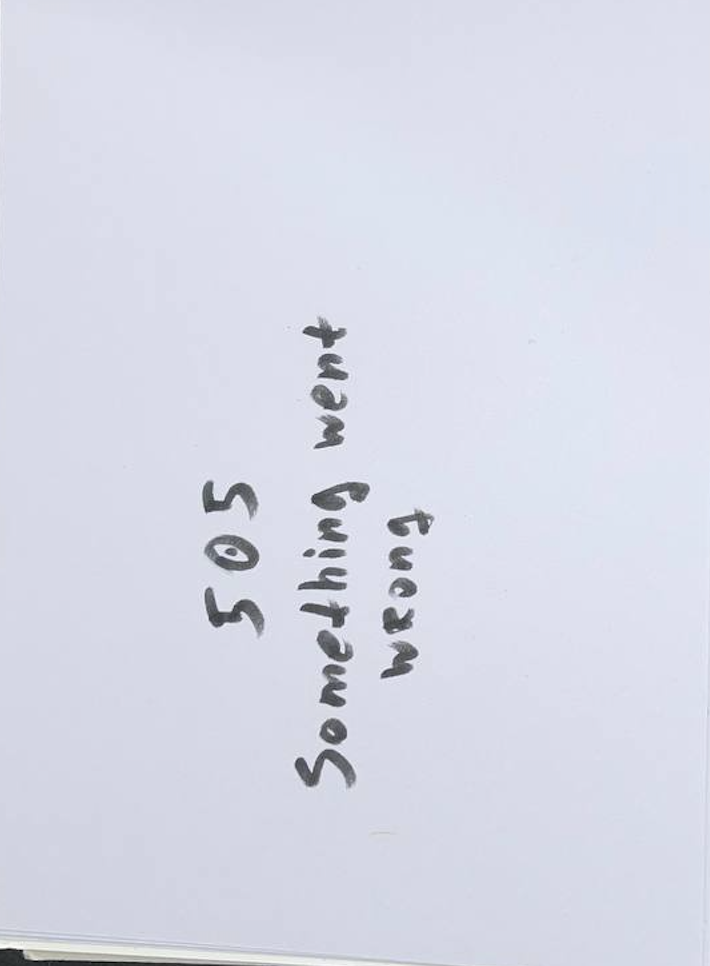 505
Something went
wrong